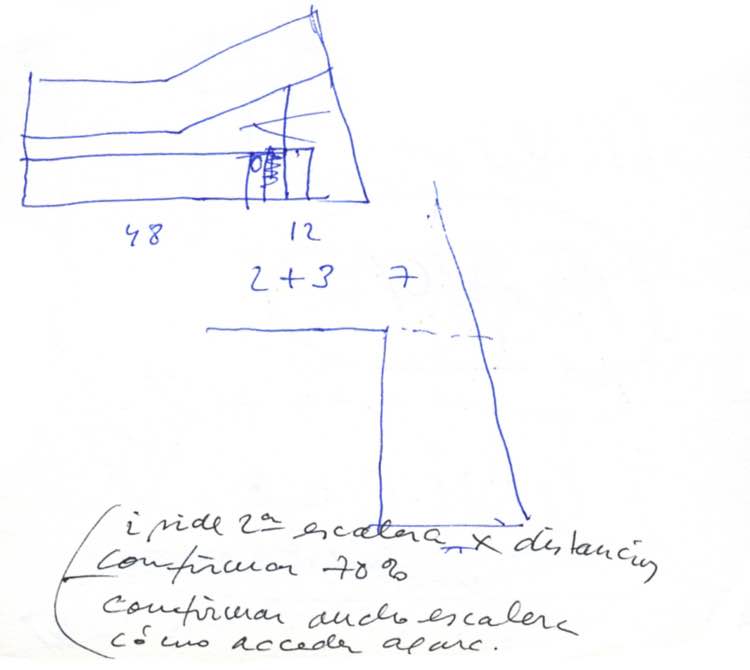 48 12
2 + 3 7
pide 2ª escalera x distancias
confirmar 70%
confirmar ancho escalera
cómo acceder aparc.